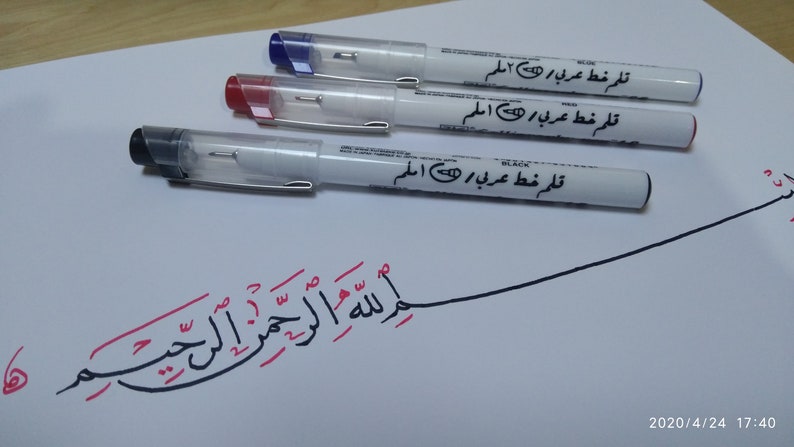 BLUE
قلم خط عربي / ٢ ملم
RED
قلم خط عربي / ١ ملم
BLACK
MADE IN JAPAN
قلم خط عربي / ١ ملم
بِسْمِ اللَّهِ الرَّحْمَٰنِ الرَّحِيمِ
2020/4/24 17:40